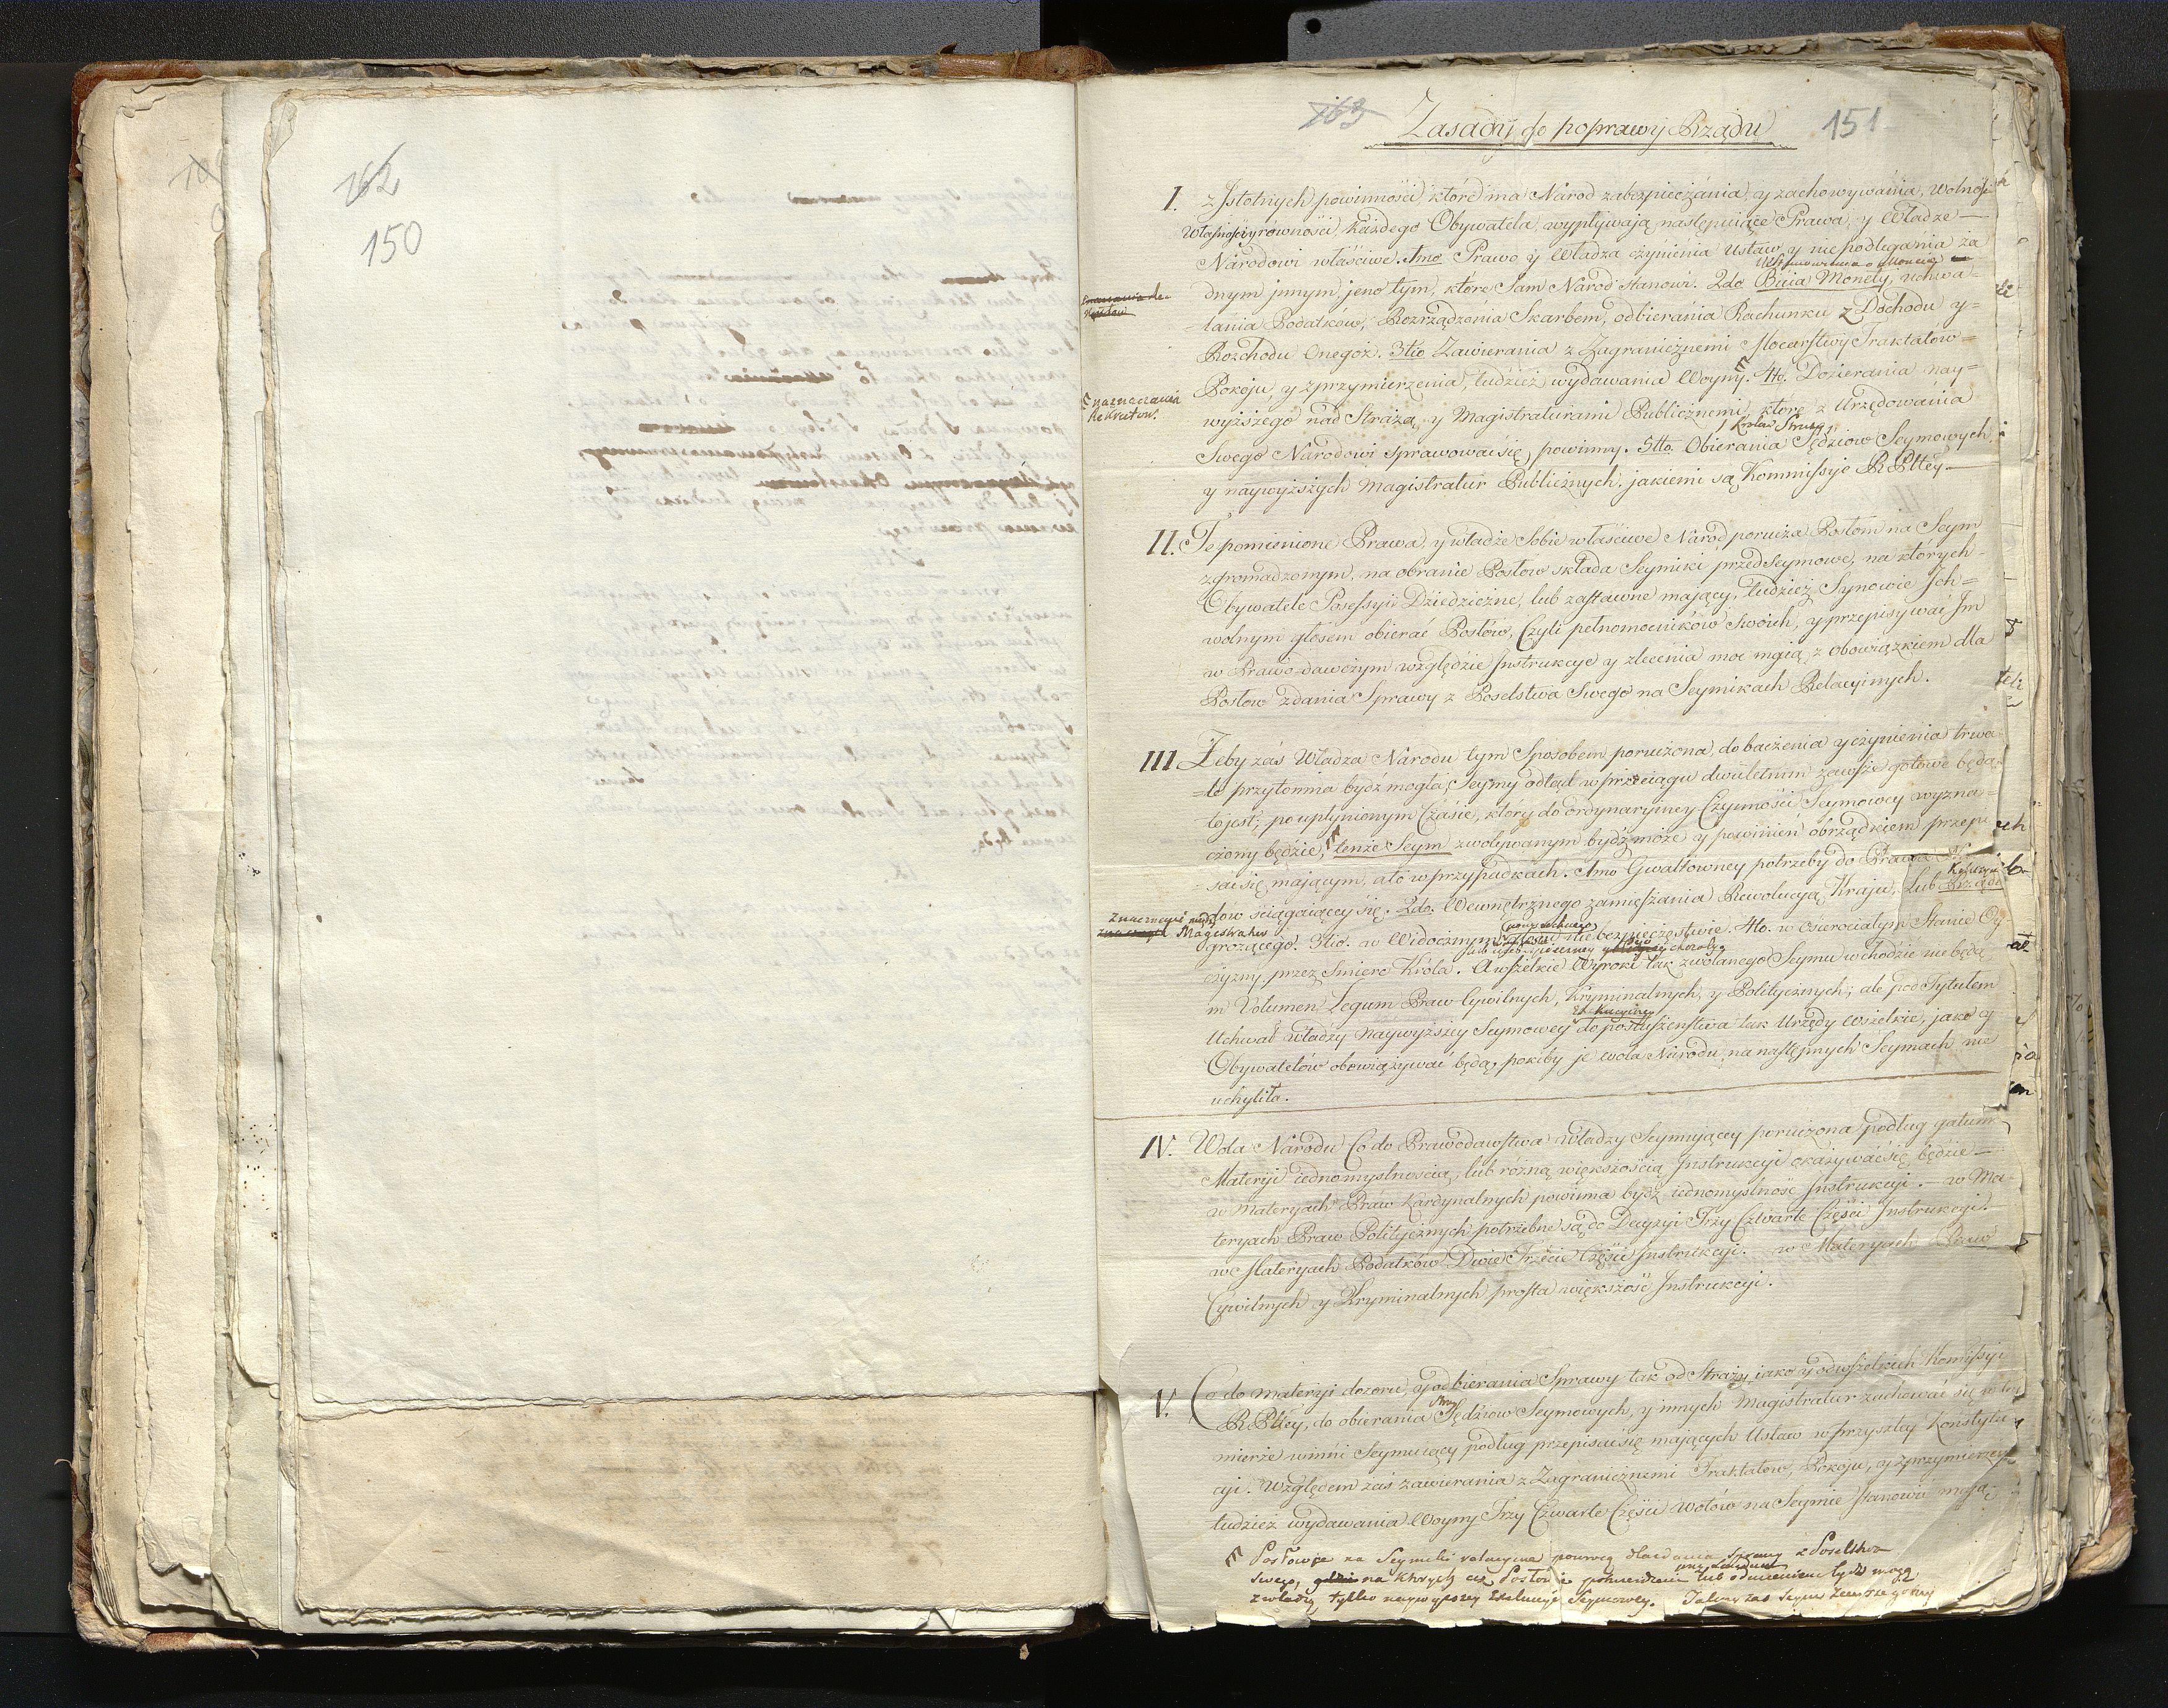 162
150
163
151
Zasady do poprawy Rządu
I. z Jstotnych powinnosci, które ma Národ zabezpieczánia, y zachowywánia, Wolnosci
Własnosci y równosci każdego Obywatela, wypływają następuiące Prawa, y Władze
Národowi właściwe. 1mo Prawo y Władza czynienia Ustaw, y niepodlegania ża
dnym jnnym, jeno tym, które Sam Národ stanowi. 2do Bicia Monety, uchwa=
=lania Podatków, Rozrządzenia Skarbem, odbierania Rachunku z Dochodu y=
Rozchodu Onegoż. 3tio Zawierania z Zagranicznemi Mocarstwy Traktatow=
Pokoju, y zprzymierzenia, tudzież wydawania Woyny. 4to. Dozierania nay=
naznaczania
Rekrutow.
wyższego nad Strażą, y Magistraturami Publicznemi, które z Urzędowánia
Swego Národowi sprawować się powinny. 5tto. Obierania Sędziow Seymowych,
y naywyższych Magistratur Publicznych, jakiemi są Kommissye RPltey.
II. Te pomienione Prawa, y władze Sobie właściwe Národ porucza Posłom na Seym
zgromadzonym, na obranie Posłow składa Seymiki przedSeymowe, na których=
Obywatele Possessyie Dziedziczne, lub zastawne mający, tudzież Synowie Jch=
wolnym głosem obierać Posłów, Czyli pełnomocników Swoich, y przepisywać Jm
w Prawo=dawczym względzie Jnstrukcye y zlecenia moc maią z obowiązkiem dla
Posłow zdania Sprawy z Poselstwa Swego na Seymikach Relacyinych.
III Żeby zaś Władza Národu tym Sposobem poruczona, do baczenia y czynienia trwa
=le przytomna bydź mogła, Seymy odtąd w przeciągu dwuletnim zawsze gotowe będą
tojest, po upłynionym Czásie, który do ordynaryiney Czynności Seymowey wyzna=
czony będzie, tenże Seym zwoływanym bydź może y powinien obrządkiem przepi
=sać się mającym, ale w przypadkach. 1mo Gwałtowney potrzeby do Prawa Na
dów ściągaiącey się. 2do. Wewnętrznego zamieszania Rewolucyą Kraju, Lub
grożącego. 3tio. w Widocznym niebezpieczęstwie. 4to. w osierociałym Stanie Oy
czyzny, przez Smierć Króla. A wszelkie Wyroki tak zwołanego Seymu wchodzić nie będą
w Volumen Legum Praw Cywilnych, Kryminalnych, y Politycznych; ale pod Tytułem
Uchwał władzy naywyższey Seymowey do posłuszenstwa tak Urzędy wszelkie, jako y
Obywatelów obowiązywać będą, pokiby je wola Národu, na następnych Seymach nie
uchyliła.
IV. Wola Národu Co do Prawodawstwa władzy Seymuiącey poruczona podług gatun
Materyi iednomyslnoscią, lub różną większoscią Jnstrukcyi okazywać się będzie
w Materyach Praw Kardynalnych powinna bydź iednomyslnosc Jnstrukcyi. w Ma
teryach Praw Politycznych potrzebne są do Decyzyi Trzy Czwarte Części Jnstrukcyi.
w Materyach Podatków Dwie Trzecie Części Jnstrukcyi. w Materyach Praw
Cywilnych y Kryminalnych prosta większosc Jnstrukcyi.
V. Co do materyi dozoru, y odbierania Sprawy tak od Straży, iako y od wszelkich Komissyi
RPltey, do obierania Sędziow Seymowych, y innych Magistratur zachować się w tey
mierze winni Seymuiący podług przepisać się mających Ustaw w przyszłey Konstytu
cyi. Względem zaś zawierania z Zagranicznemi Traktatow, Pokoju, y zprzymierzeń
tudzież wydawania Woyny Trzy Czwarte Części Wotów na Seymie stanowić mają.
Posłowie na Seymiki relacyine powrócą dla zdania sprawy z Poselstwa
swego, na których ciż Posłowie potwierdzeni lub odmienieni bydź mogą,
z władzą tylko naywyższey Seymowey. Takowy zaś Seym zawsze gotowy